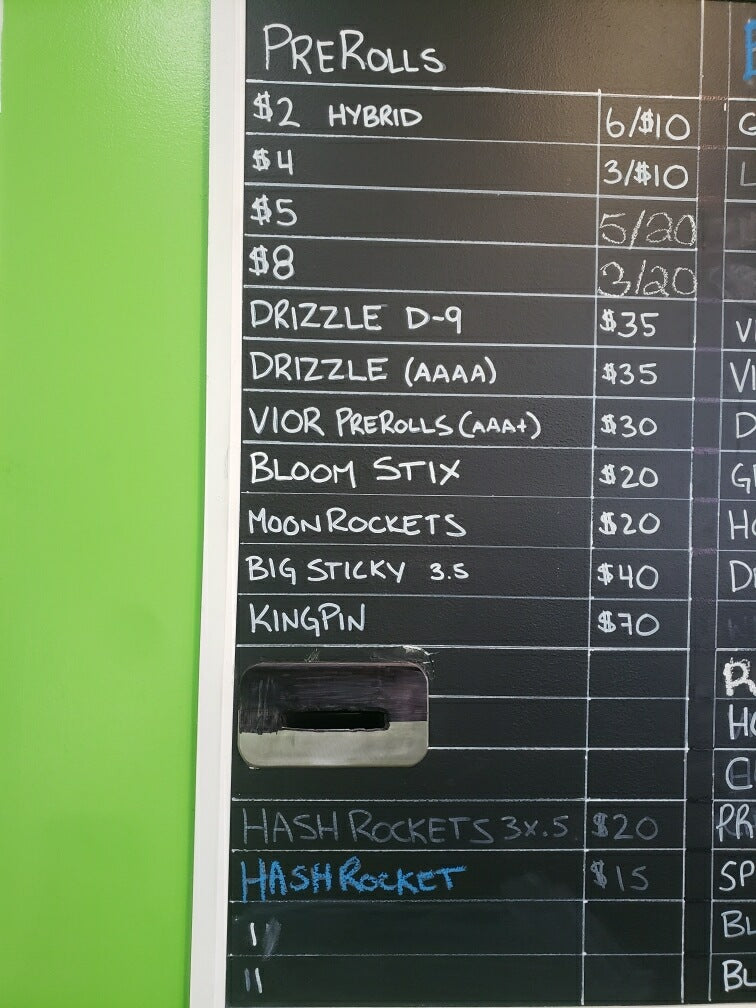 PREROLLS
$2 HYBRID 6/$10
$4 3/$10
$5 5/20
$8 3/20
DRIZZLE D-9 $35
DRIZZLE (AAAA) $35
VIOR PREROLLS (AAA+) $30
BLOOM STIX $20
MOONROCKETS $20
BIG STICKY 3.5 $40
KINGPIN $70
HASH ROCKETS 3x.5 $20
HASH ROCKET $15
VI
VI
D
GI
HO
DI
R
HO
C
PR
SP
BL
BL